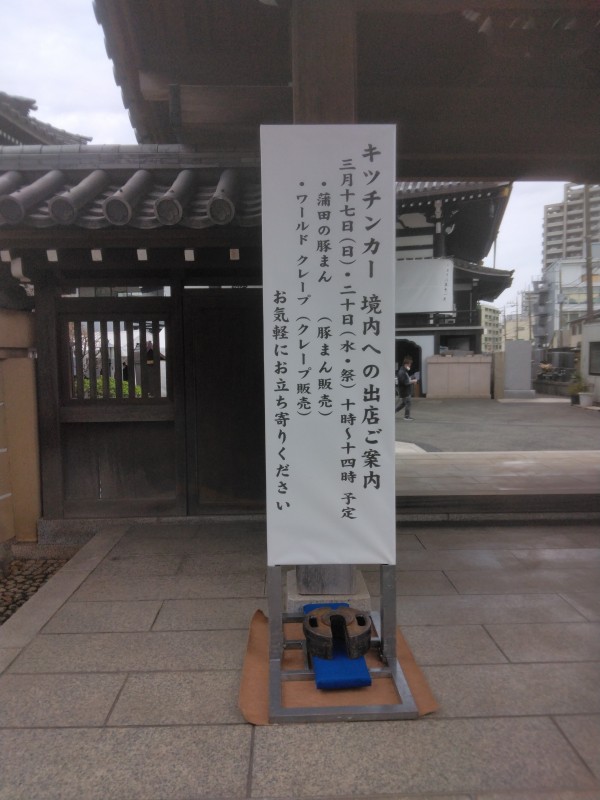 キッチンカー 境内への出店ご案内
三月十七日(日)・二十日(水・祭)十時~十四時 予定
・蒲田の豚まん (豚まん販売)
・ワールド クレープ(クレープ販売)
お気軽にお立ち寄りください